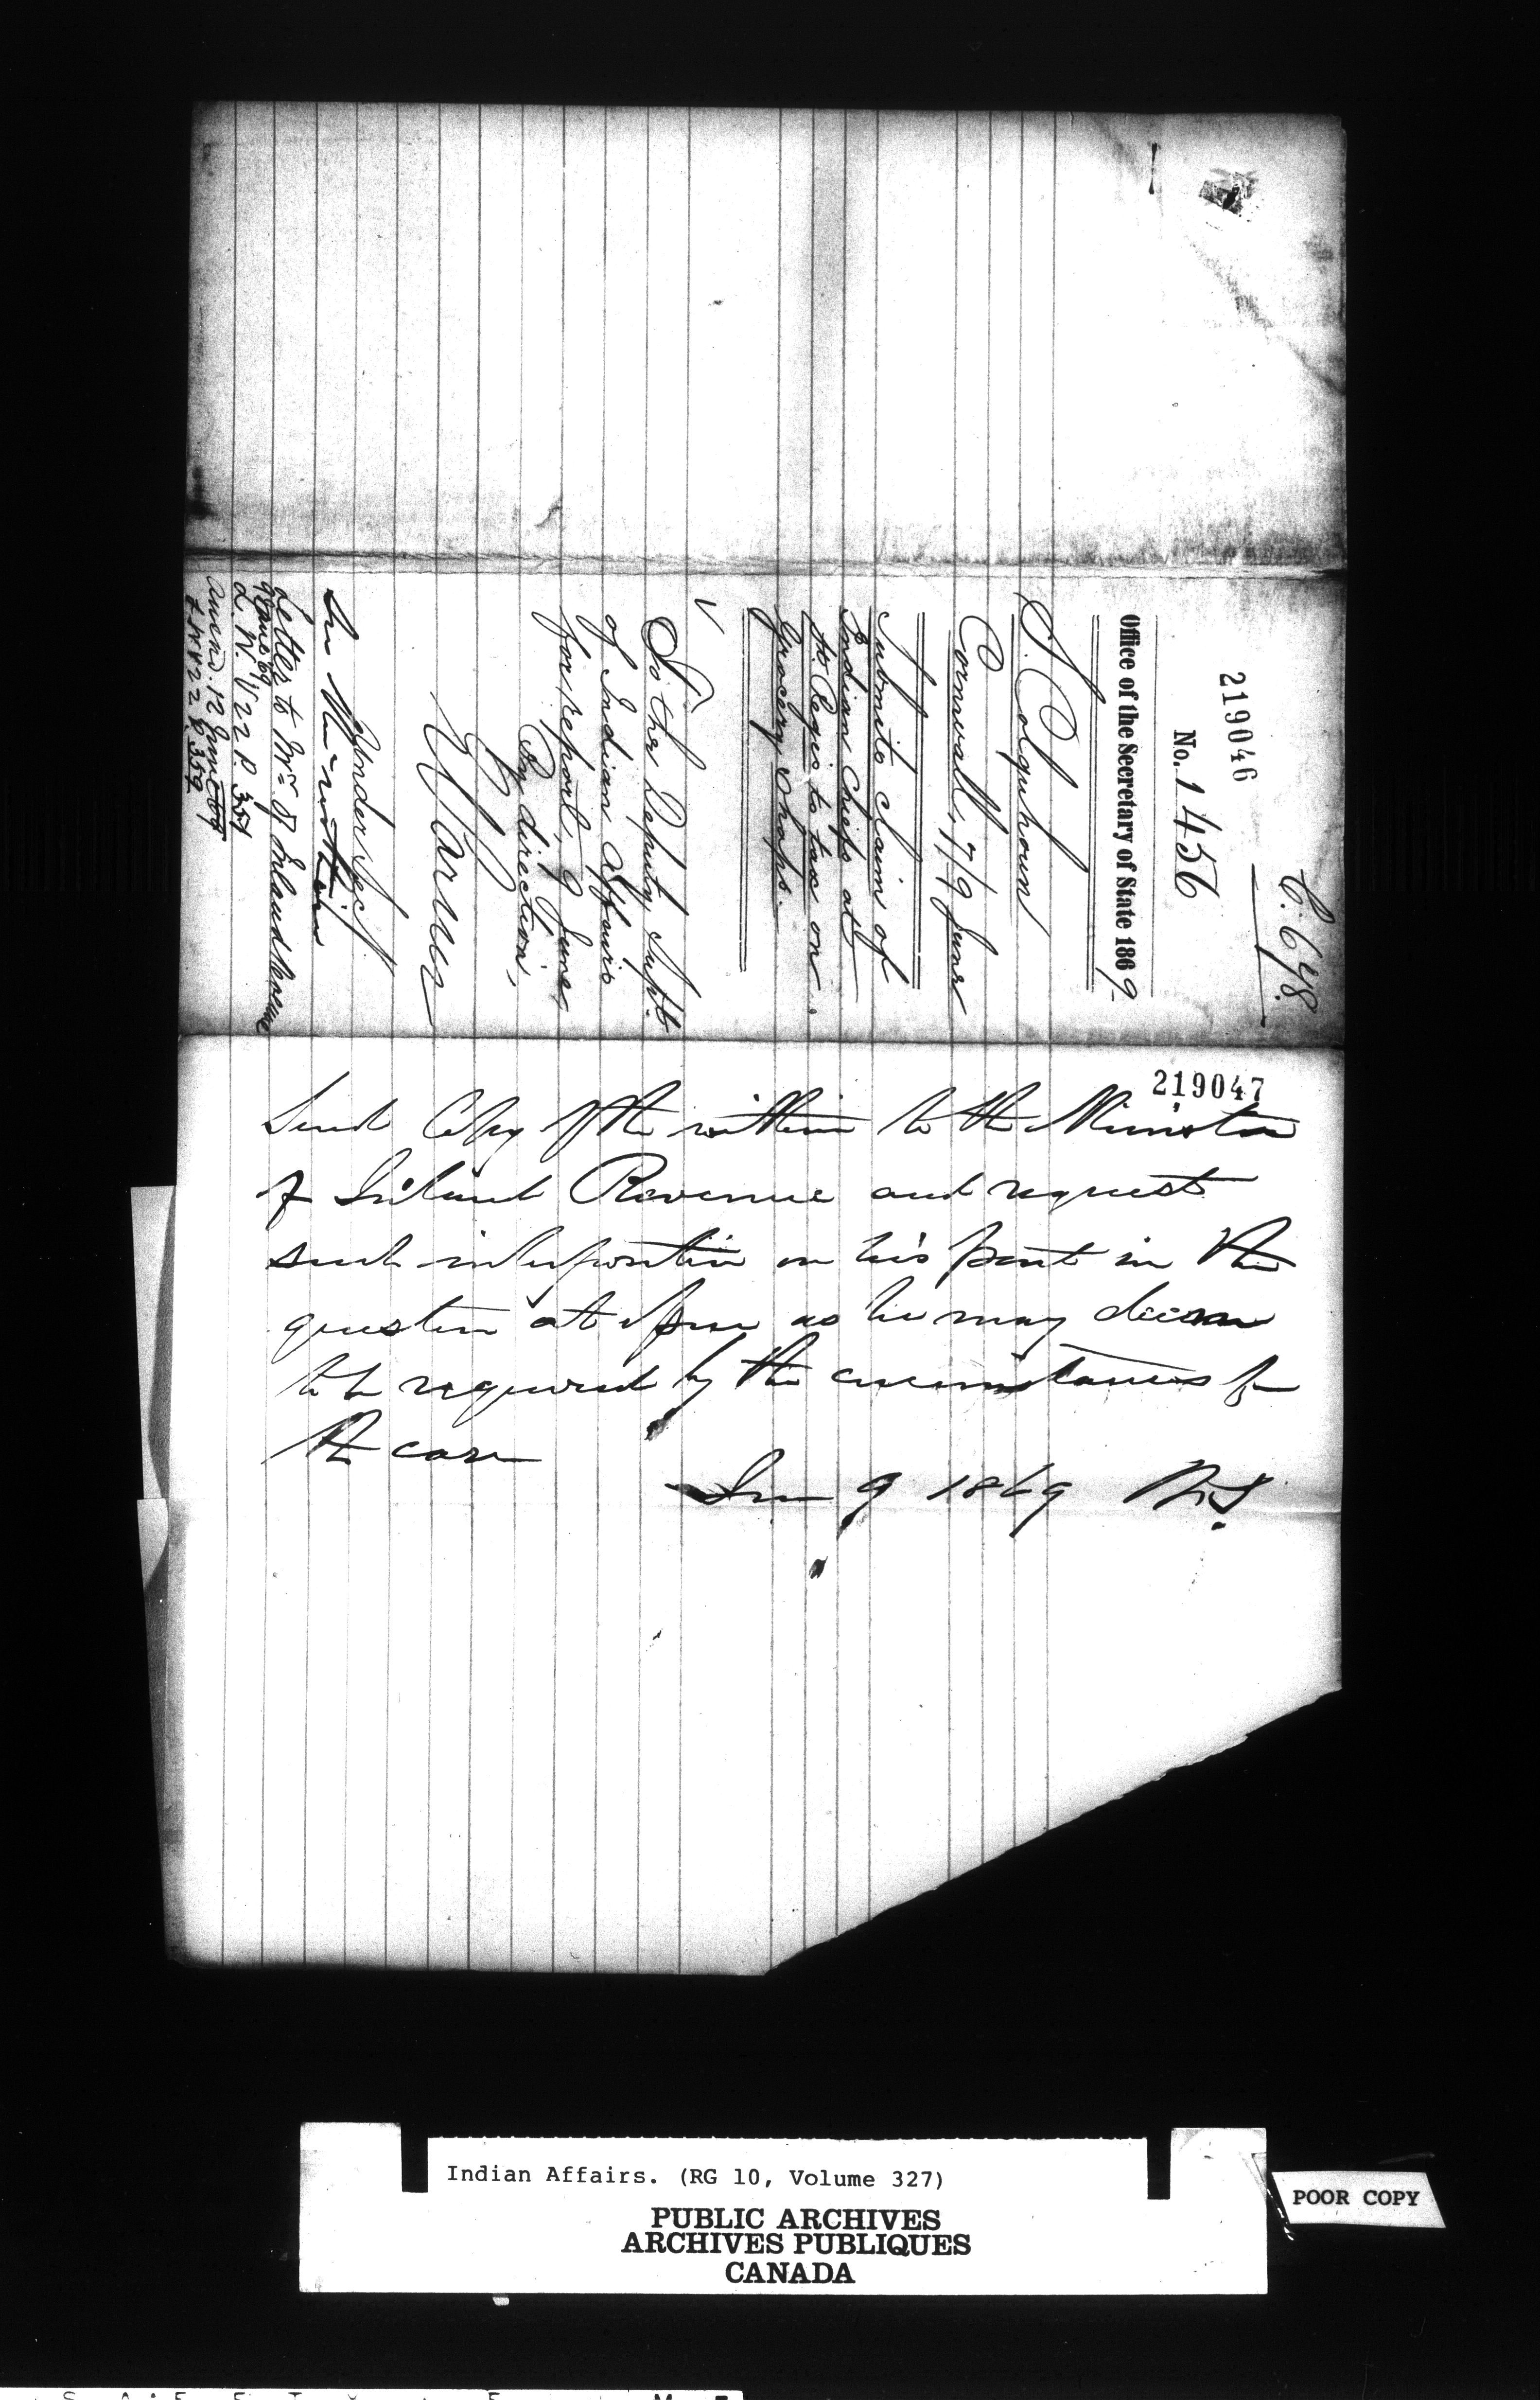 C. 648.
219046
No. 1456
Office of the Secretary of State 1869
S. Colquhoun
Cornwall, 7/9 June
Submits claim of
Indian Chiefs at
St. Regis to tax on
Grocery Shops.
To the Deputy Supt
of Indian Affairs
for report, 9 June,
By direction,
Under Sec
Letter to Mr of Inland Revenue
9 June 69
L.N. V 22 P. 357
Amend. 12 June 69
22 P. 359
219047
Send Copy of the within to the Minister
of Inland Revenue and request
such interposition on his part in the
question at issue as he may deem
to be required by the circumstances of
the case
June 9 1869
Indian Affairs. (RG 10, Volume 327)
PUBLIC ARCHIVES
ARCHIVES PUBLIQUES
CANADA
POOR COPY